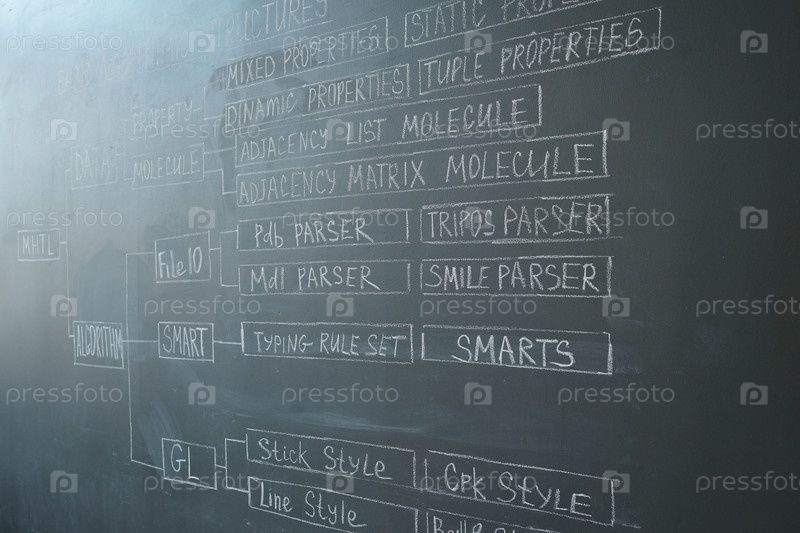 STRUCTURES
STATIC
MIXED PROPERTIES
TUPLE PROPERTIES
PROPERTY
DINAMIC PROPERTIES
ADJACENCY LIST MOLECULE
DATA
MOLECULE
ADJACENCY MATRIX MOLECULE
MHTL
File IO
Pdb PARSER
TRIPOS PARSER
Mdl PARSER
SMILE PARSER
ALGORITHM
SMART
TYPING RULE SET
SMARTS
GL
Stick Style
Cpk STYLE
Line Style
pressfoto